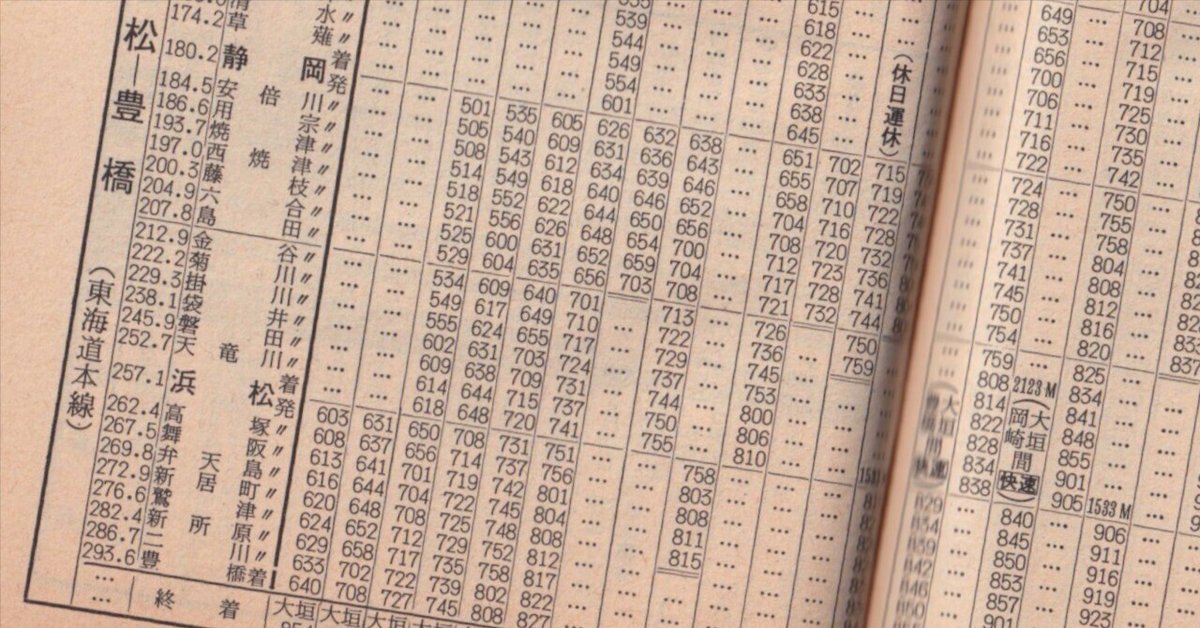 松―豊橋(東海道本線)
174.2 草薙 〃
180.2 静岡 着発
184.5 安倍川 〃
186.6 用宗 〃
193.7 焼津 〃
197.0 西焼津 〃
200.3 藤枝 〃
204.9 六合 〃
207.8 島田 〃
212.9 金谷 〃
222.2 菊川 〃
229.3 掛川 〃
238.1 袋井 〃
245.9 磐田 〃
252.7 天竜川 〃
257.1 浜松 着発
262.4 高塚 〃
267.5 舞阪 〃
269.8 弁天島 〃
272.9 新居町 〃
276.6 鷲津 〃
282.4 新所原 〃
286.7 二川 〃
293.6 豊橋 着
… 終着
603 608 613 616 620 624 629 633 640 大垣
631 637 641 644 648 652 658 702 708 大垣
501 505 508 514 518 521 525 529 534 549 555 602 609 614 618 650 656 701 704 708 712 717 722 727 大垣
535 540 543 549 552 556 600 604 609 617 624 631 638 644 648 708 714 719 722 725 729 735 739 745
605 609 612 618 622 626 631 635 640 649 655 703 709 715 720 731 737 742 745 748 752 758 802 808
539 544 549 554 601 626 631 634 640 644 648 652 656 701 710 717 724 731 737 741 751 756 801 804 808 812 817 822 827
632 636 639 646 650 654 659 703
638 643 646 652 656 700 704 708 713 722 729 737 744 750 755 758 803 808 811 815
615 618 622 628 633 638 645 651 655 658 704 708 712 717 721 726 736 745 753 800 806 810
702 707 710 716 720 723 728 732
(休日運休) 715 719 722 728 732 736 741 744 750 759
649 653 656 700 706 711 716 722 724 728 731 737 741 745 750 754 759 808 814 822 828 834 838 840 845 850 853 857 901
2123M (大垣 岡崎間 快速)
704 708 712 715 719 725 730 735 742 750 755 758 804 808 812 816 820 825 834 841 848 855 901 905
1533M 906 911 916 919 923